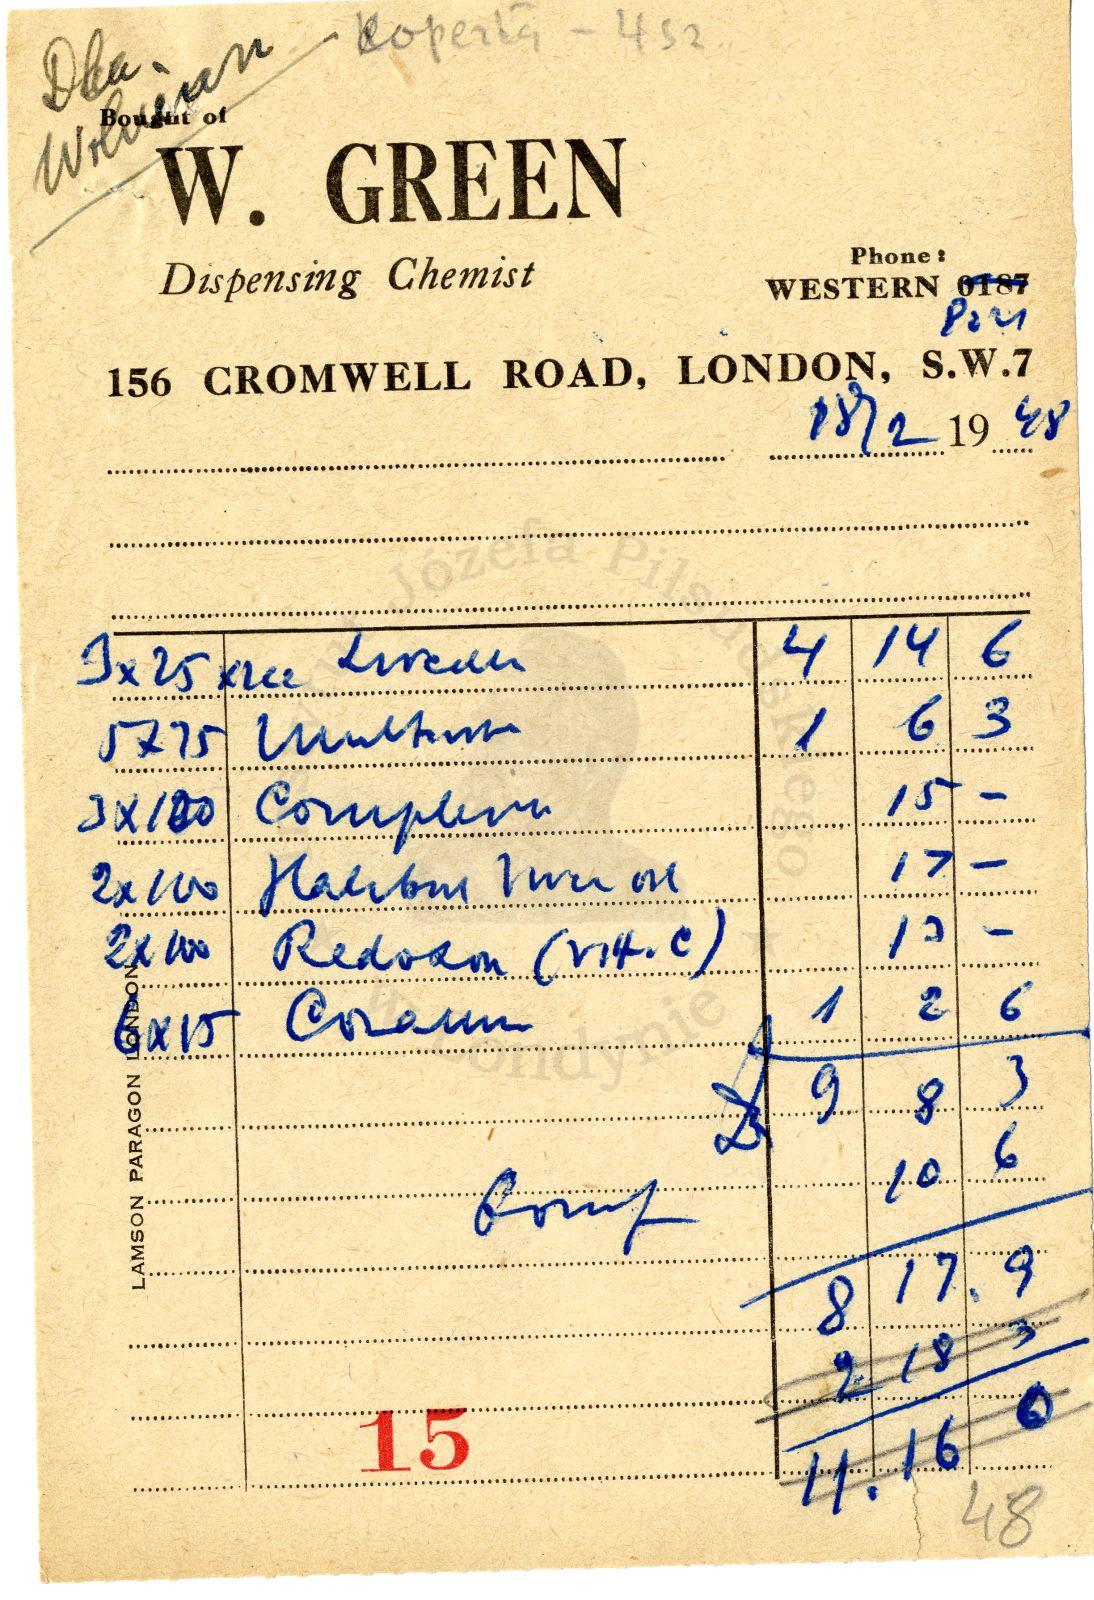 Dla
koperta - 4 sz.
Bought of
W. GREEN
Dispensing Chemist
Phone:
WESTERN 0187
156 CROMWELL ROAD, LONDON, S.W.7
18/2 19 48
Józefa Piłsudskiego
w Londynie
3x25 4 14 6
5x75 1 6 3
3x100 15 -
2x100 Halibut Liver oil 17 -
2x100 Redoxon (Vit. C) 13 -
6x15 1 2 6
9 8 3
10 6
8 17. 9
2 18 3
11. 16 0
15
48
LAMSON PARAGON LONDON